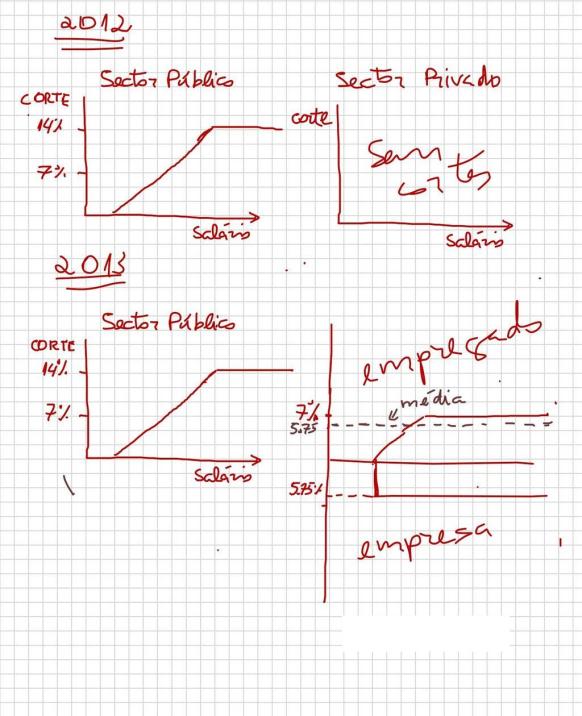 2012
Sector Público
CORTE
14%
7%
Salário
Sector Privado
corte
Sem
cortes
Salário
2013
Sector Público
CORTE
14%
7%
Salário
empregado
média
7%
5.75
5.75%
empresa